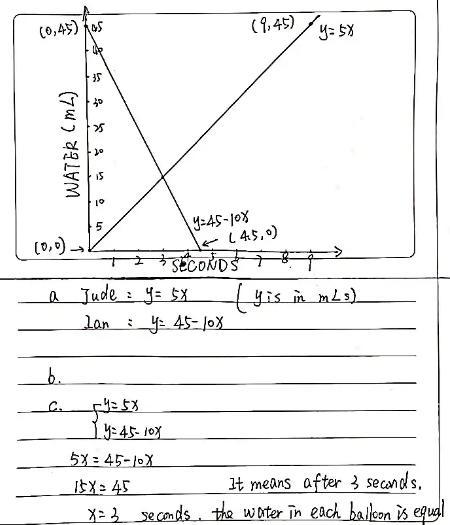 (0,45)
45
40
35
30
25
20
15
10
5
WATER (mL)
(9,45)
y=5x
y=45-10x
(4.5,0)
(0,0)
1 2 3 4 5 6 7 8 9
SECONDS
a Jude: y= 5x (y is in mLs)
Ian : y= 45-10x
b.
c. y=5x
y=45-10x
5x=45-10x
15x=45 It means after 3 seconds,
x=3 seconds. the water in each balloon is equal